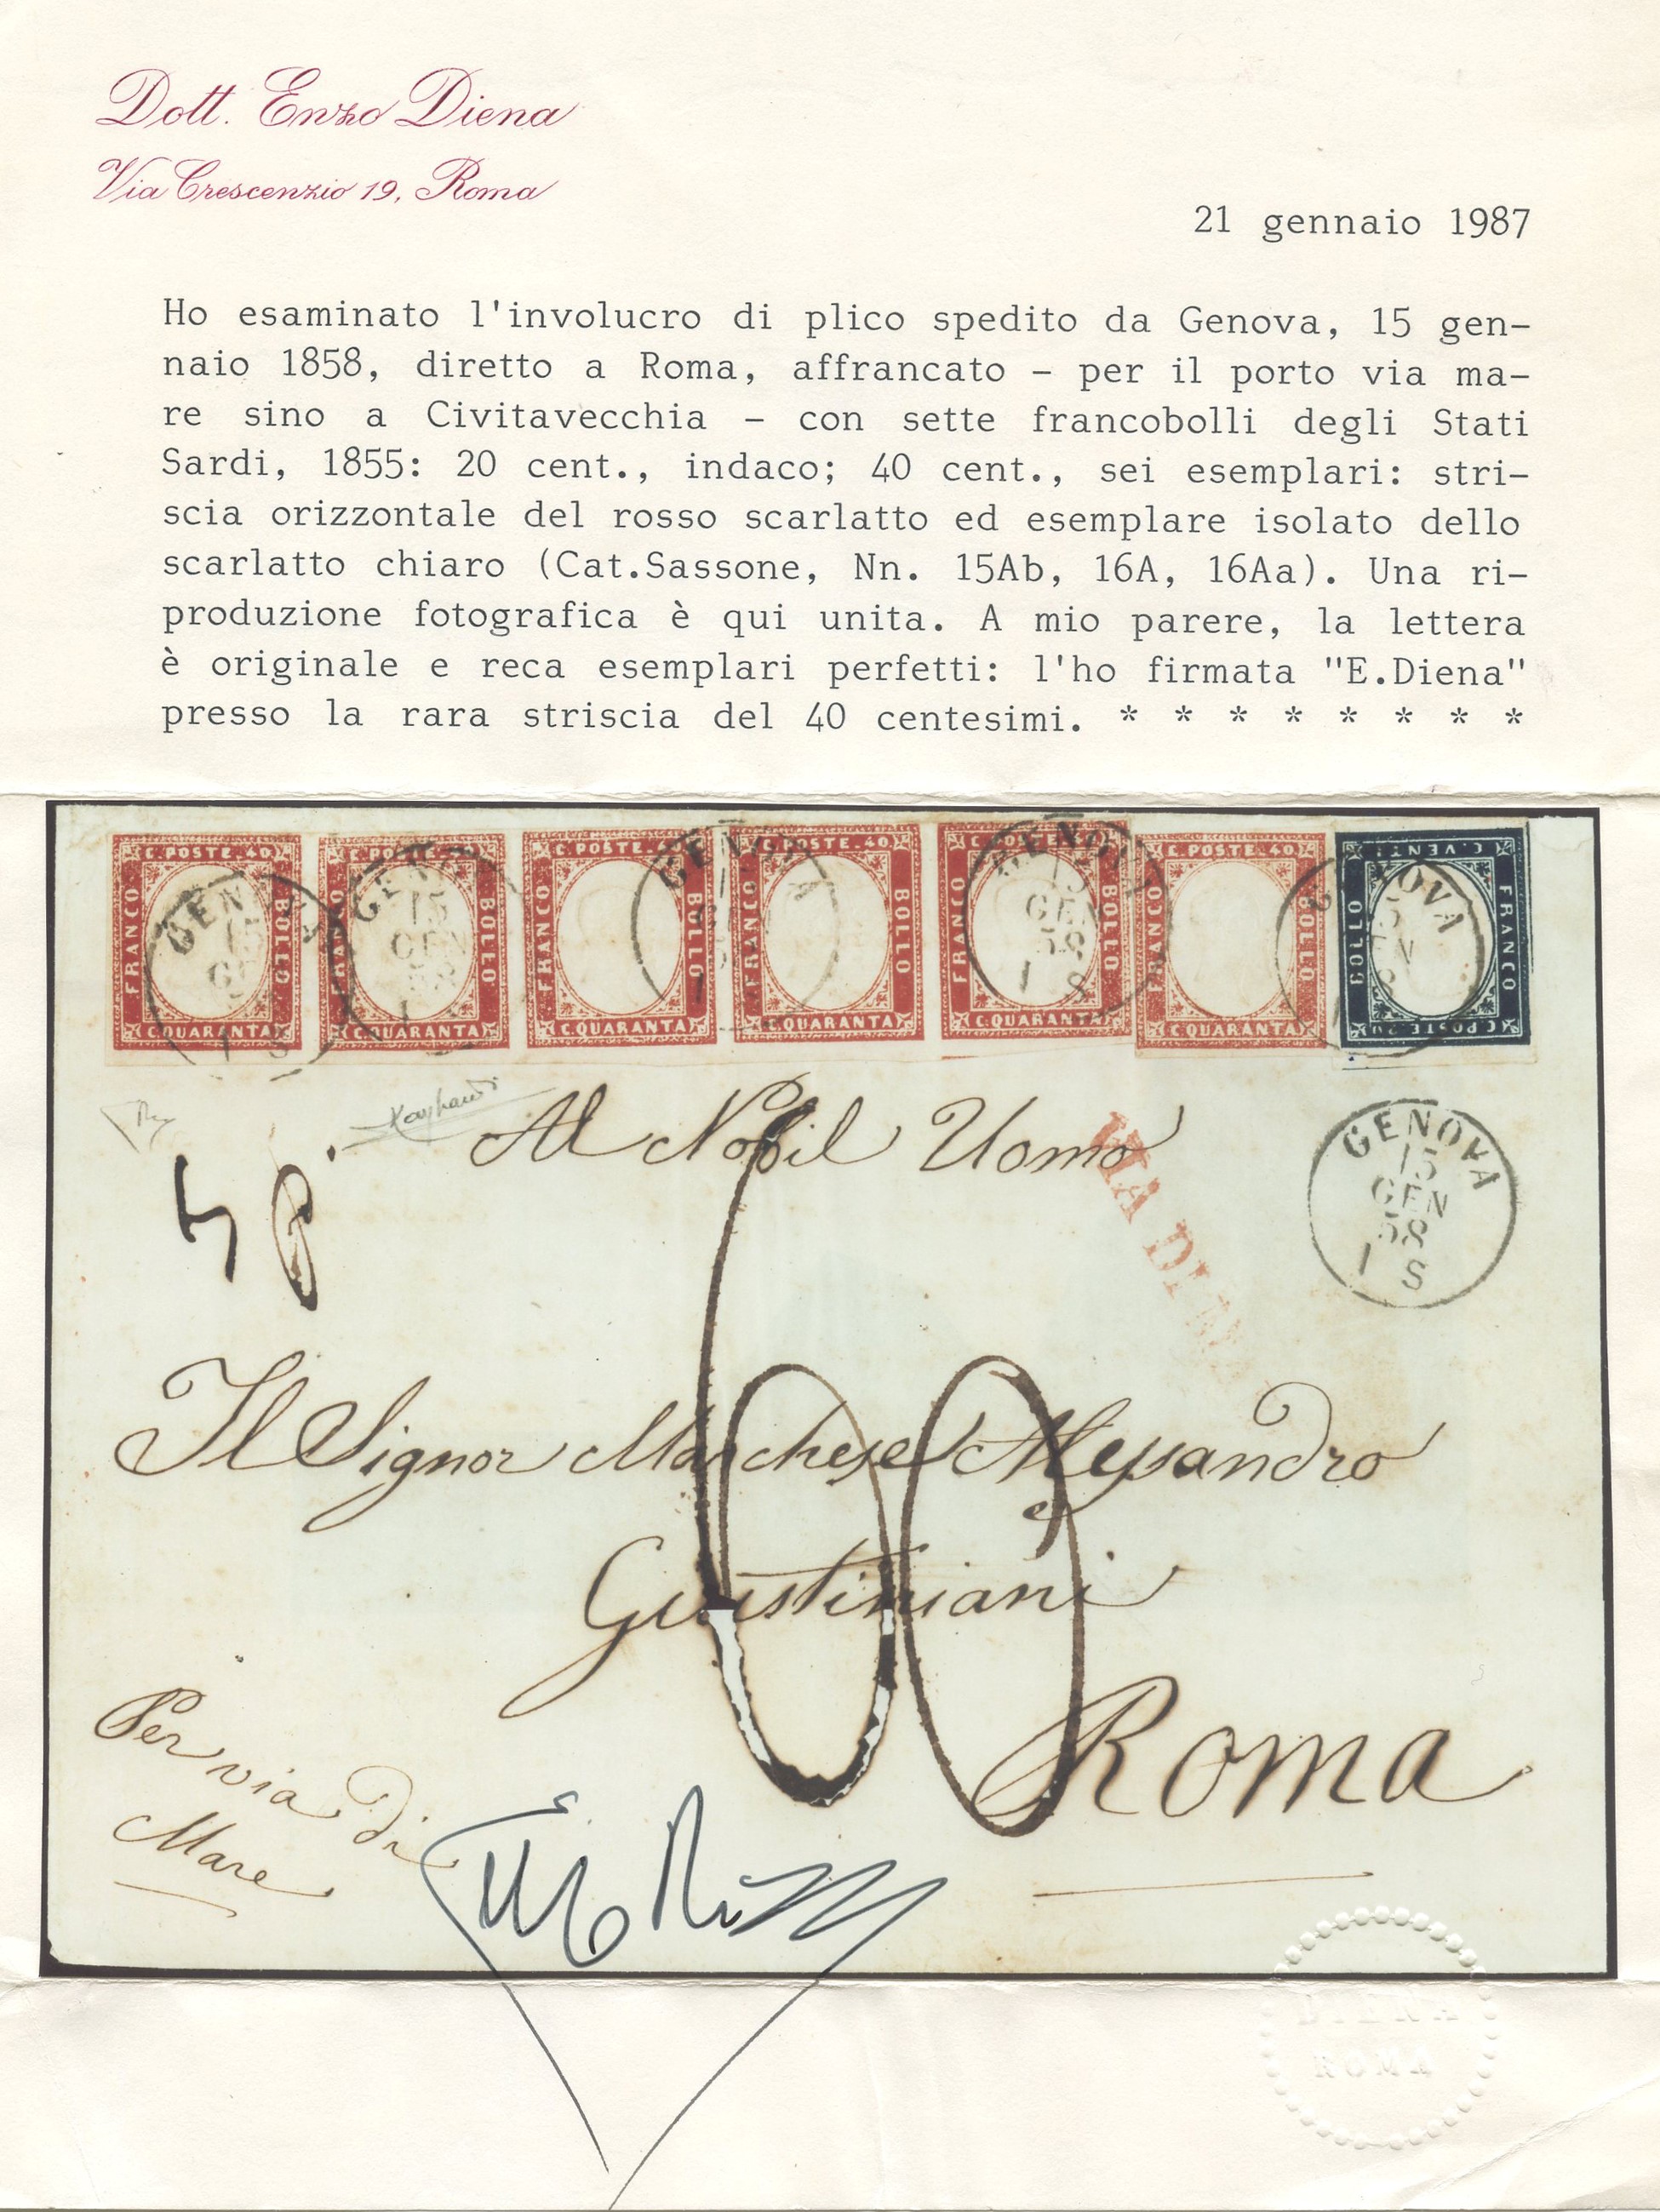 Dott. Enzo Diena
Via Crescenzio 19, Roma
21 gennaio 1987
Ho esaminato l'involucro di plico spedito da Genova, 15 gen-
naio 1858, diretto a Roma, affrancato - per il porto via ma-
re sino a Civitavecchia - con sette francobolli degli Stati
Sardi, 1855: 20 cent., indaco; 40 cent., sei esemplari: stri-
scia orizzontale del rosso scarlatto ed esemplare isolato dello
scarlatto chiaro (Cat.Sassone, Nn. 15Ab, 16A, 16Aa). Una ri-
produzione fotografica è qui unita. A mio parere, la lettera
è originale e reca esemplari perfetti: l'ho firmata "E.Diena"
presso la rara striscia del 40 centesimi. * * * * * * * *
C.POSTE.40. FRANCO BOLLO C.QUARANTA
C.POSTE.40. FRANCO BOLLO C.QUARANTA
C.POSTE.40. FRANCO BOLLO C.QUARANTA
C.POSTE.40. FRANCO BOLLO C.QUARANTA
C.POSTE.40. FRANCO BOLLO C.QUARANTA
C.POSTE.40. FRANCO BOLLO C.QUARANTA
C.POSTE.20 FRANCO BOLLO C.VENTI
GENOVA 15 GEN 58 1 S
Al Nobil Uomo
VIA DI
GENOVA
15
GEN
58
1 S
60
Il Signor Marchese Alessandro
Giustiniani
Roma
Per via di
Mare